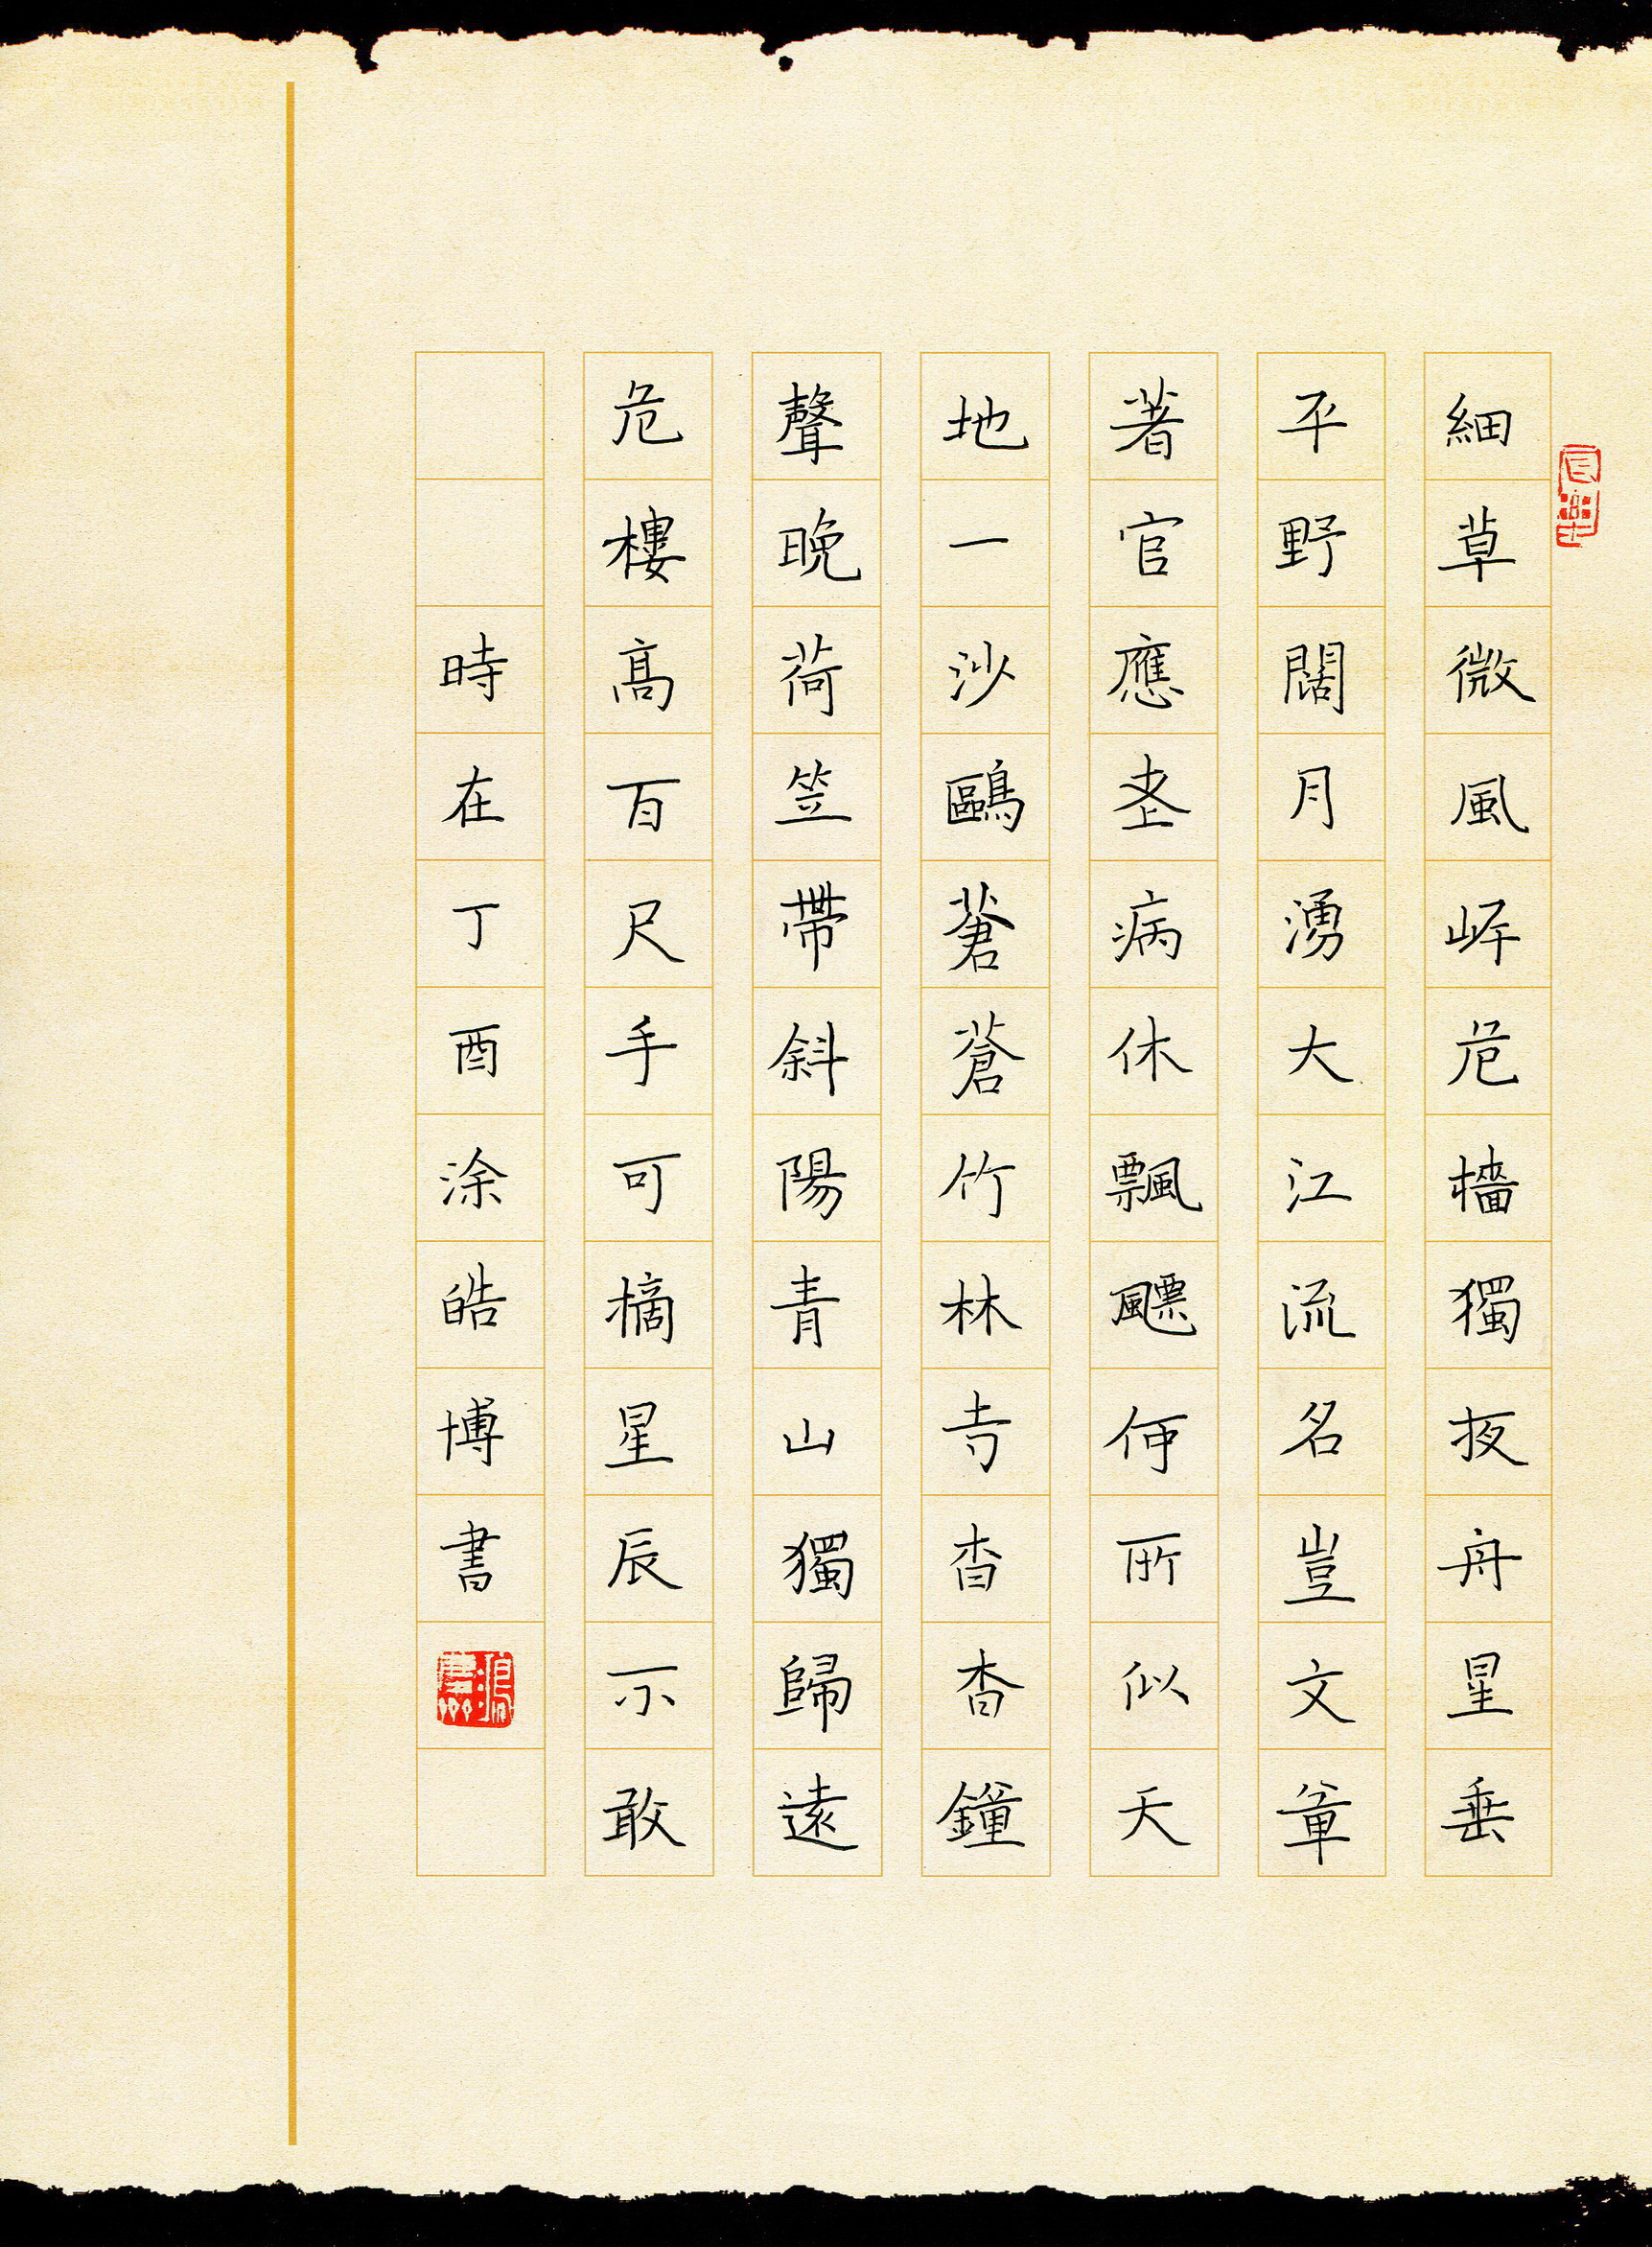 細草微風岸危檣獨夜舟星垂
平野闊月湧大江流名豈文章
著官應老病休飄飄何所似天
地一沙鷗蒼蒼竹林寺杳杳鐘
聲晚荷笠帶斜陽青山獨歸遠
危樓高百尺手可摘星辰不敢
時在丁酉涂皓博書